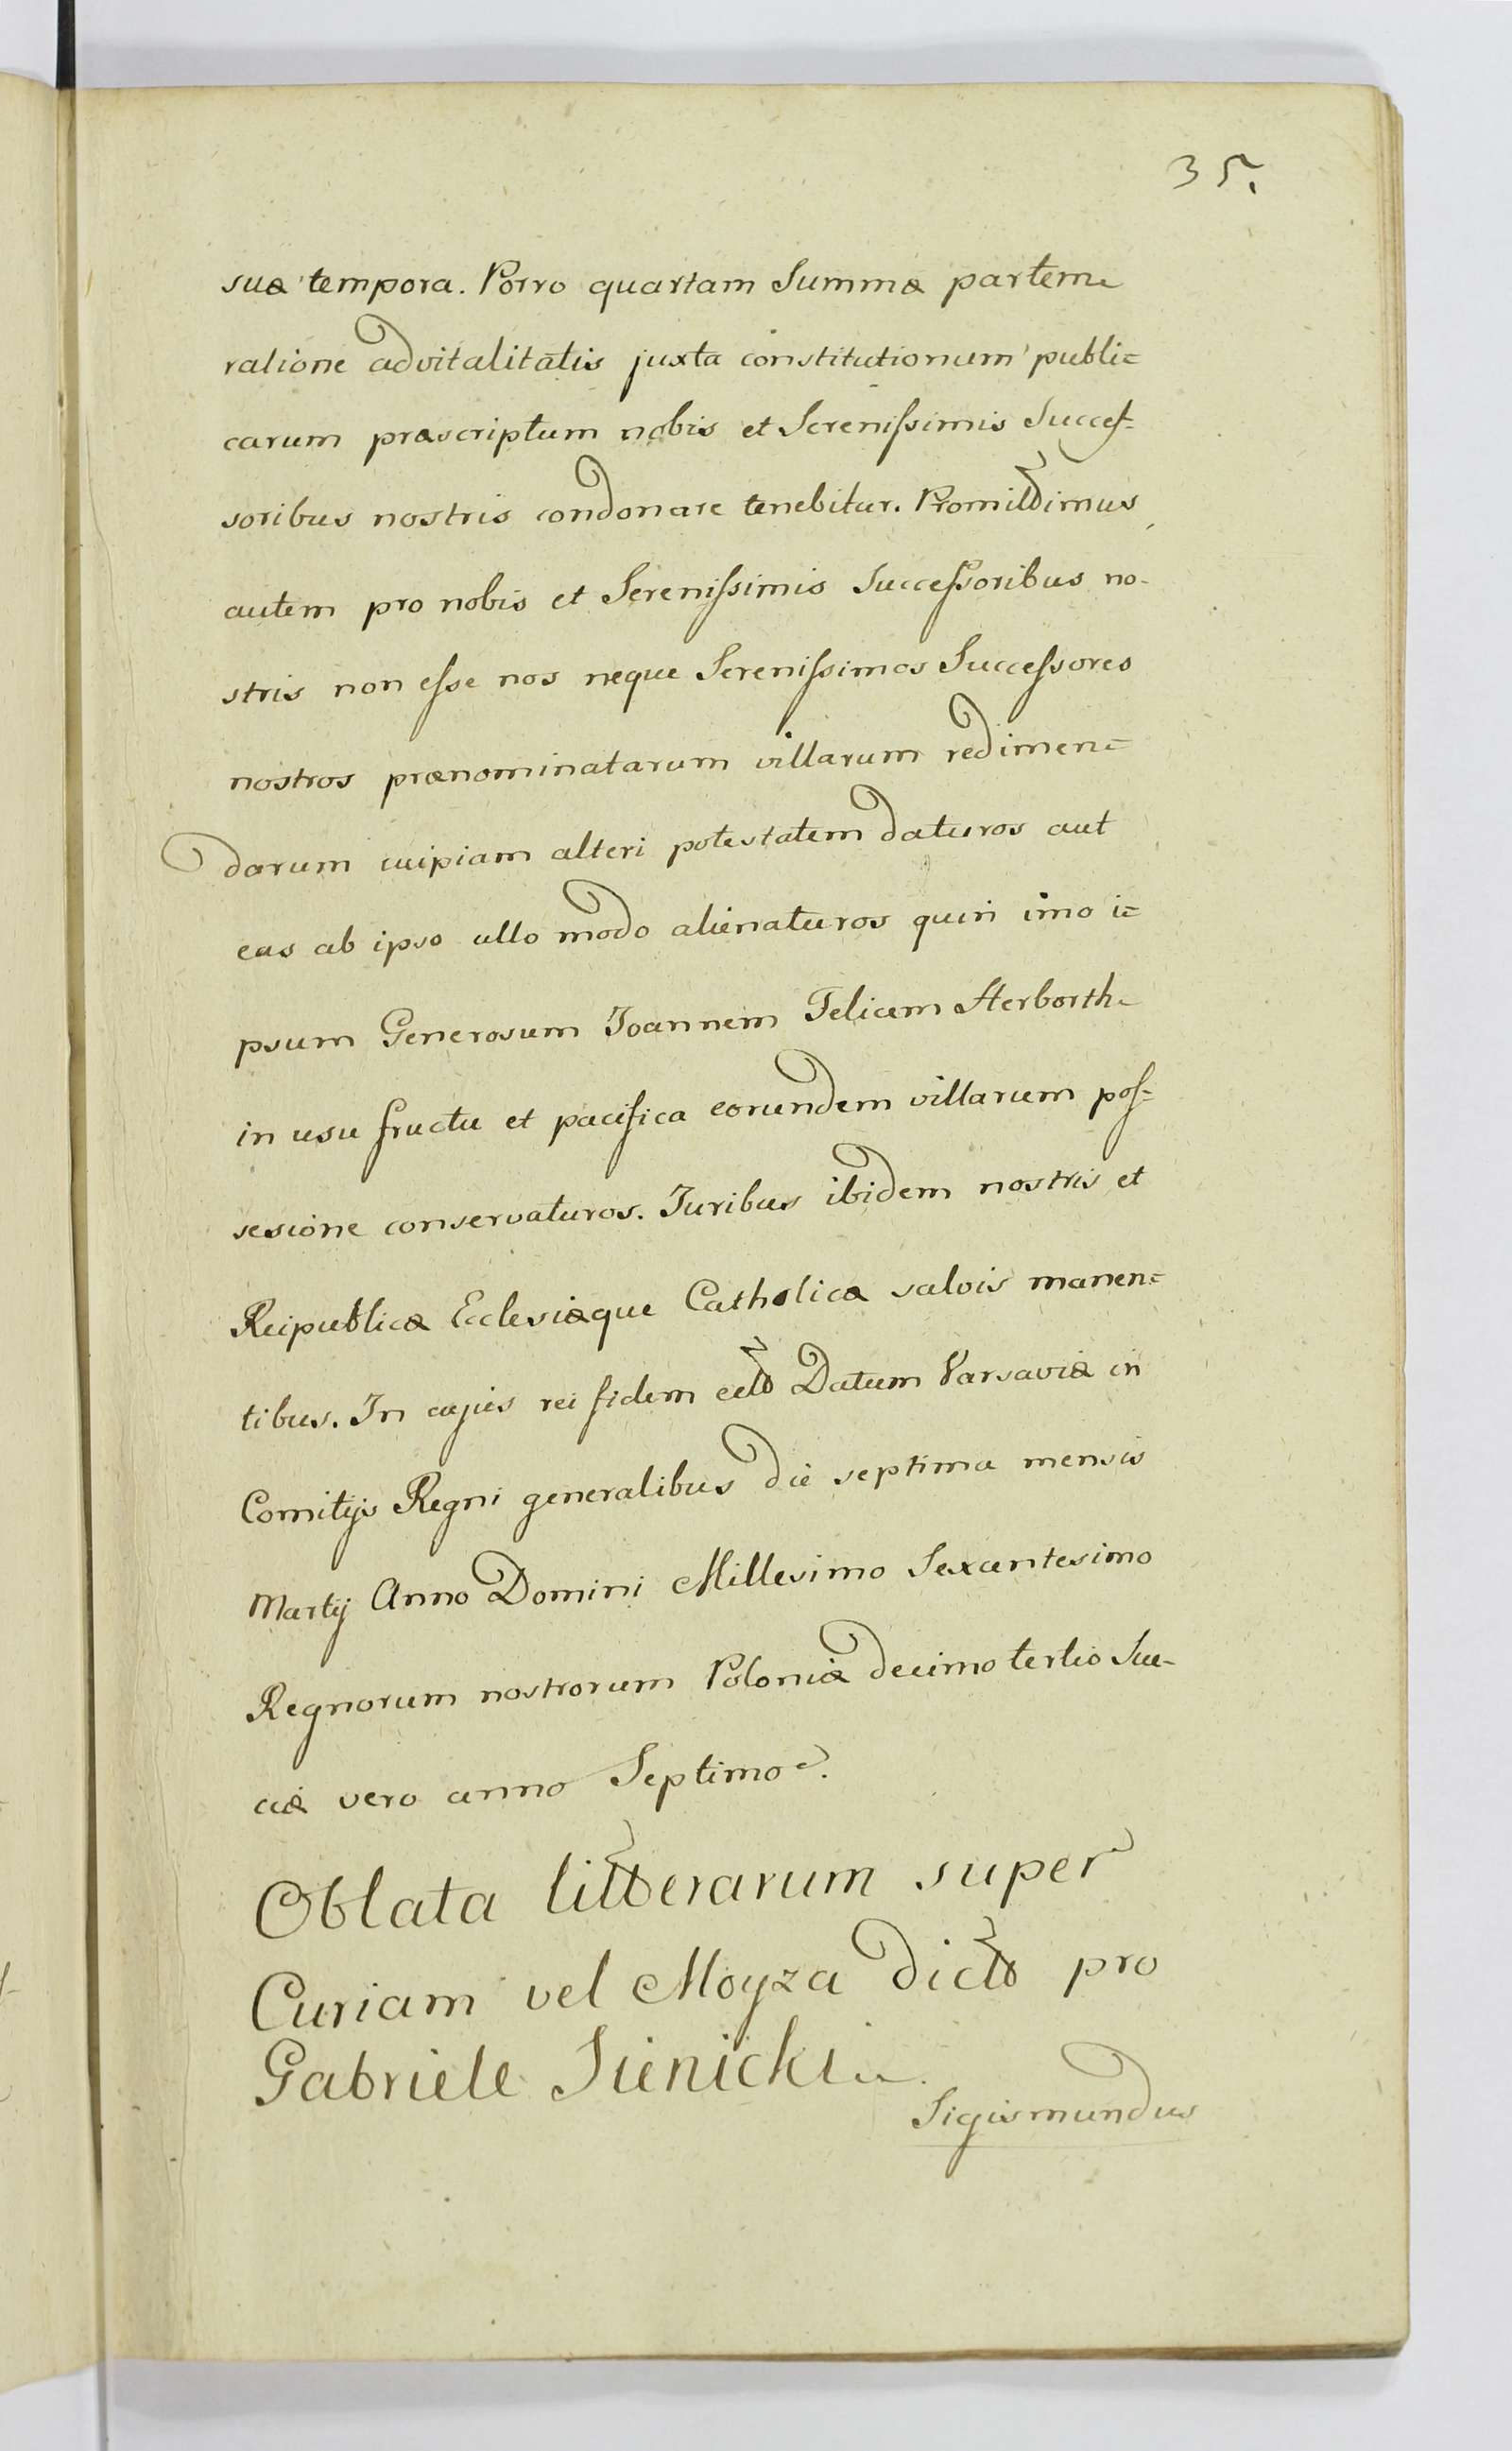 35.
suæ tempora. Porro quartam Summæ partem
ratione advitalitatis juxta constitutionum publi=
carum præscriptum nobis et Serenissimis Succes=
soribus nostris condonare tenebitur. Promittimus
autem pro nobis et Serenissimis Successoribus no-
stris non esse nos neque Serenissimos Successores
nostros prænominatarum villarum redimen=
darum cuipiam alteri potestatem daturos aut
eas ab ipso ullo modo alienaturos quin imo i=
psum Generosum Joannem Felicem Herborth
in usu fructu et pacifica eorundem villarum pos=
sesione conservaturos. Juribus ibidem nostris et
Reipublicæ Ecclesiæque Catholicæ salvis manen=
tibus. In cujus rei fidem ett Datum Varsaviæ in
Comitijs Regni generalibus die septima mensis
Martij Anno Domini Millesimo Sexcentesimo
Regnorum nostrorum Poloniæ decimo tertio Sue-
ciæ vero anno Septimo.
Oblata litterarum super
Curiam vel Moyza dictt pro
Gabriele Sienicki
Sigismundus